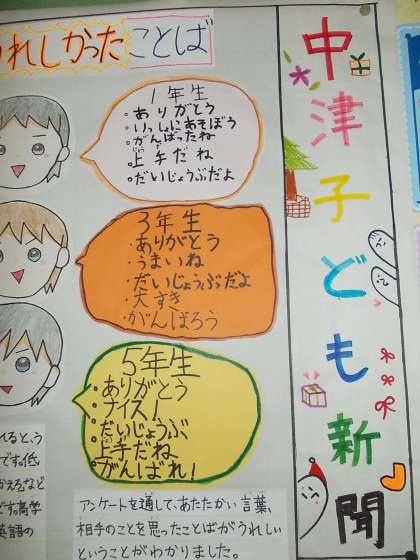 中津子ども新聞
うれしかったことば
1年生
・ありがとう
・いっしょにあそぼう
・がんばったね
・上手だね
・だいじょうぶだよ
3年生
・ありがとう
・うまいね
・だいじょうぶだよ
・大すき
・がんばろう
5年生
・ありがとう
・ナイス!
・だいじょうぶ
・上手だね
・がんばれ!
アンケートを通して、あたたかい言葉、
相手のことを思ったことばがうれしい
ということがわかりました。
れると、う
です。低
かえるなど
です。高学
英語の